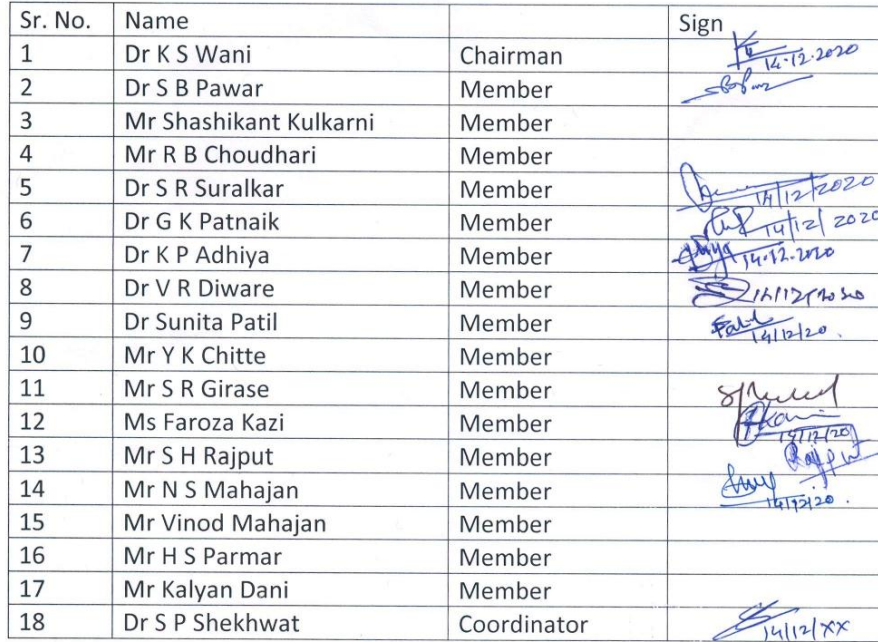 Sr. No. Name Sign
1 Dr K S Wani Chairman 14.12.2020
2 Dr S B Pawar Member
3 Mr Shashikant Kulkarni Member
4 Mr R B Choudhari Member
5 Dr S R Suralkar Member 14/12/2020
6 Dr G K Patnaik Member 14/12/2020
7 Dr K P Adhiya Member 14.12.2020
8 Dr V R Diware Member
9 Dr Sunita Patil Member 14/12/20.
10 Mr Y K Chitte Member
11 Mr S R Girase Member
12 Ms Faroza Kazi Member 14/12/20
13 Mr S H Rajput Member
14 Mr N S Mahajan Member 14/12/20.
15 Mr Vinod Mahajan Member
16 Mr H S Parmar Member
17 Mr Kalyan Dani Member
18 Dr S P Shekhwat Coordinator 14/12/XX